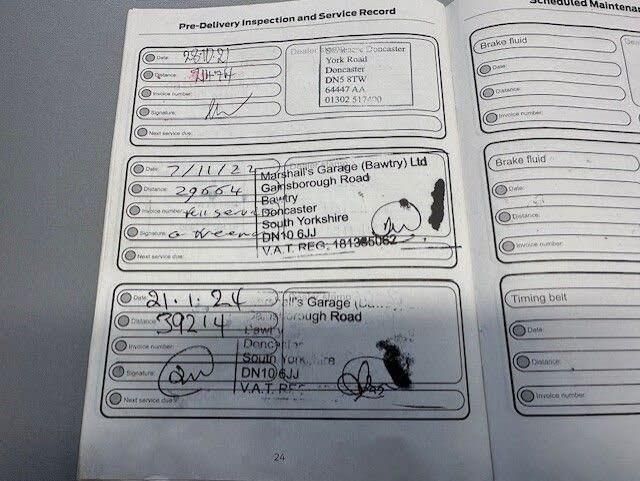 Pre-Delivery Inspection and Service Record
Scheduled Maintenan
Date:
Distance:
Invoice number:
Signature:
Next service due:
Doncaster
York Road
Doncaster
DN5 8TW
64447 AA
01302 517400
Date: 7/11/22
Distance: 29664
Invoice number:
Signature:
Next service due:
Marshall's Garage (Bawtry) Ltd
Gainsborough Road
Bawtry
Doncaster
South Yorkshire
DN10 6JJ
V.A.T. REG; 181385062
Date: 21.1.24
Distance: 39214
Invoice number:
Signature:
Next service due:
all's Garage (Bawtry)
Gainsborough Road
Bawtry
Doncaster
South Yorkshire
DN10 6JJ
V.A.T. REG
24
Brake fluid
Date:
Distance:
Invoice number:
Brake fluid
Date:
Distance:
Invoice number:
Timing belt
Date:
Distance:
Invoice number: